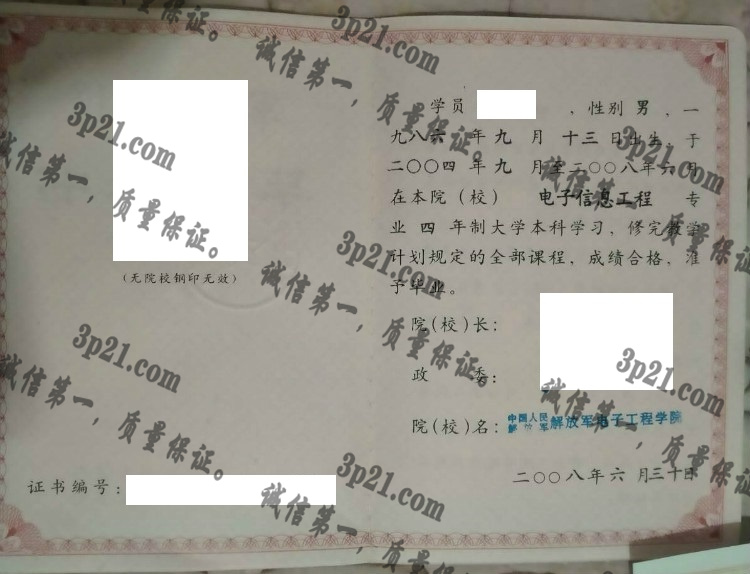 学员 ，性别 男 ，一
九八六 年 九 月 十三 日出生，于
二〇〇四 年 九 月至二〇〇八年六月
在本院（校） 电子信息工程 专
业 四 年制大学本科学习，修完教学
计划规定的全部课程，成绩合格，准
予毕业。
（无院校钢印无效）
院（校）长：
政 委：
院（校）名：中国人民解放军解放军电子工程学院
证书编号：
二〇〇八年 六 月三十日
3p21.com
诚信第一，质量保证。
3p21.com
诚信第一，质量保证。
3p21.com
诚信第一，质量保证。
3p21.com
诚信第一，质量保证。
3p21.com
诚信第一，质量保证。
3p21.com
诚信第一，质量保证。
3p21.com
诚信第一，质量保证。
质量保证。